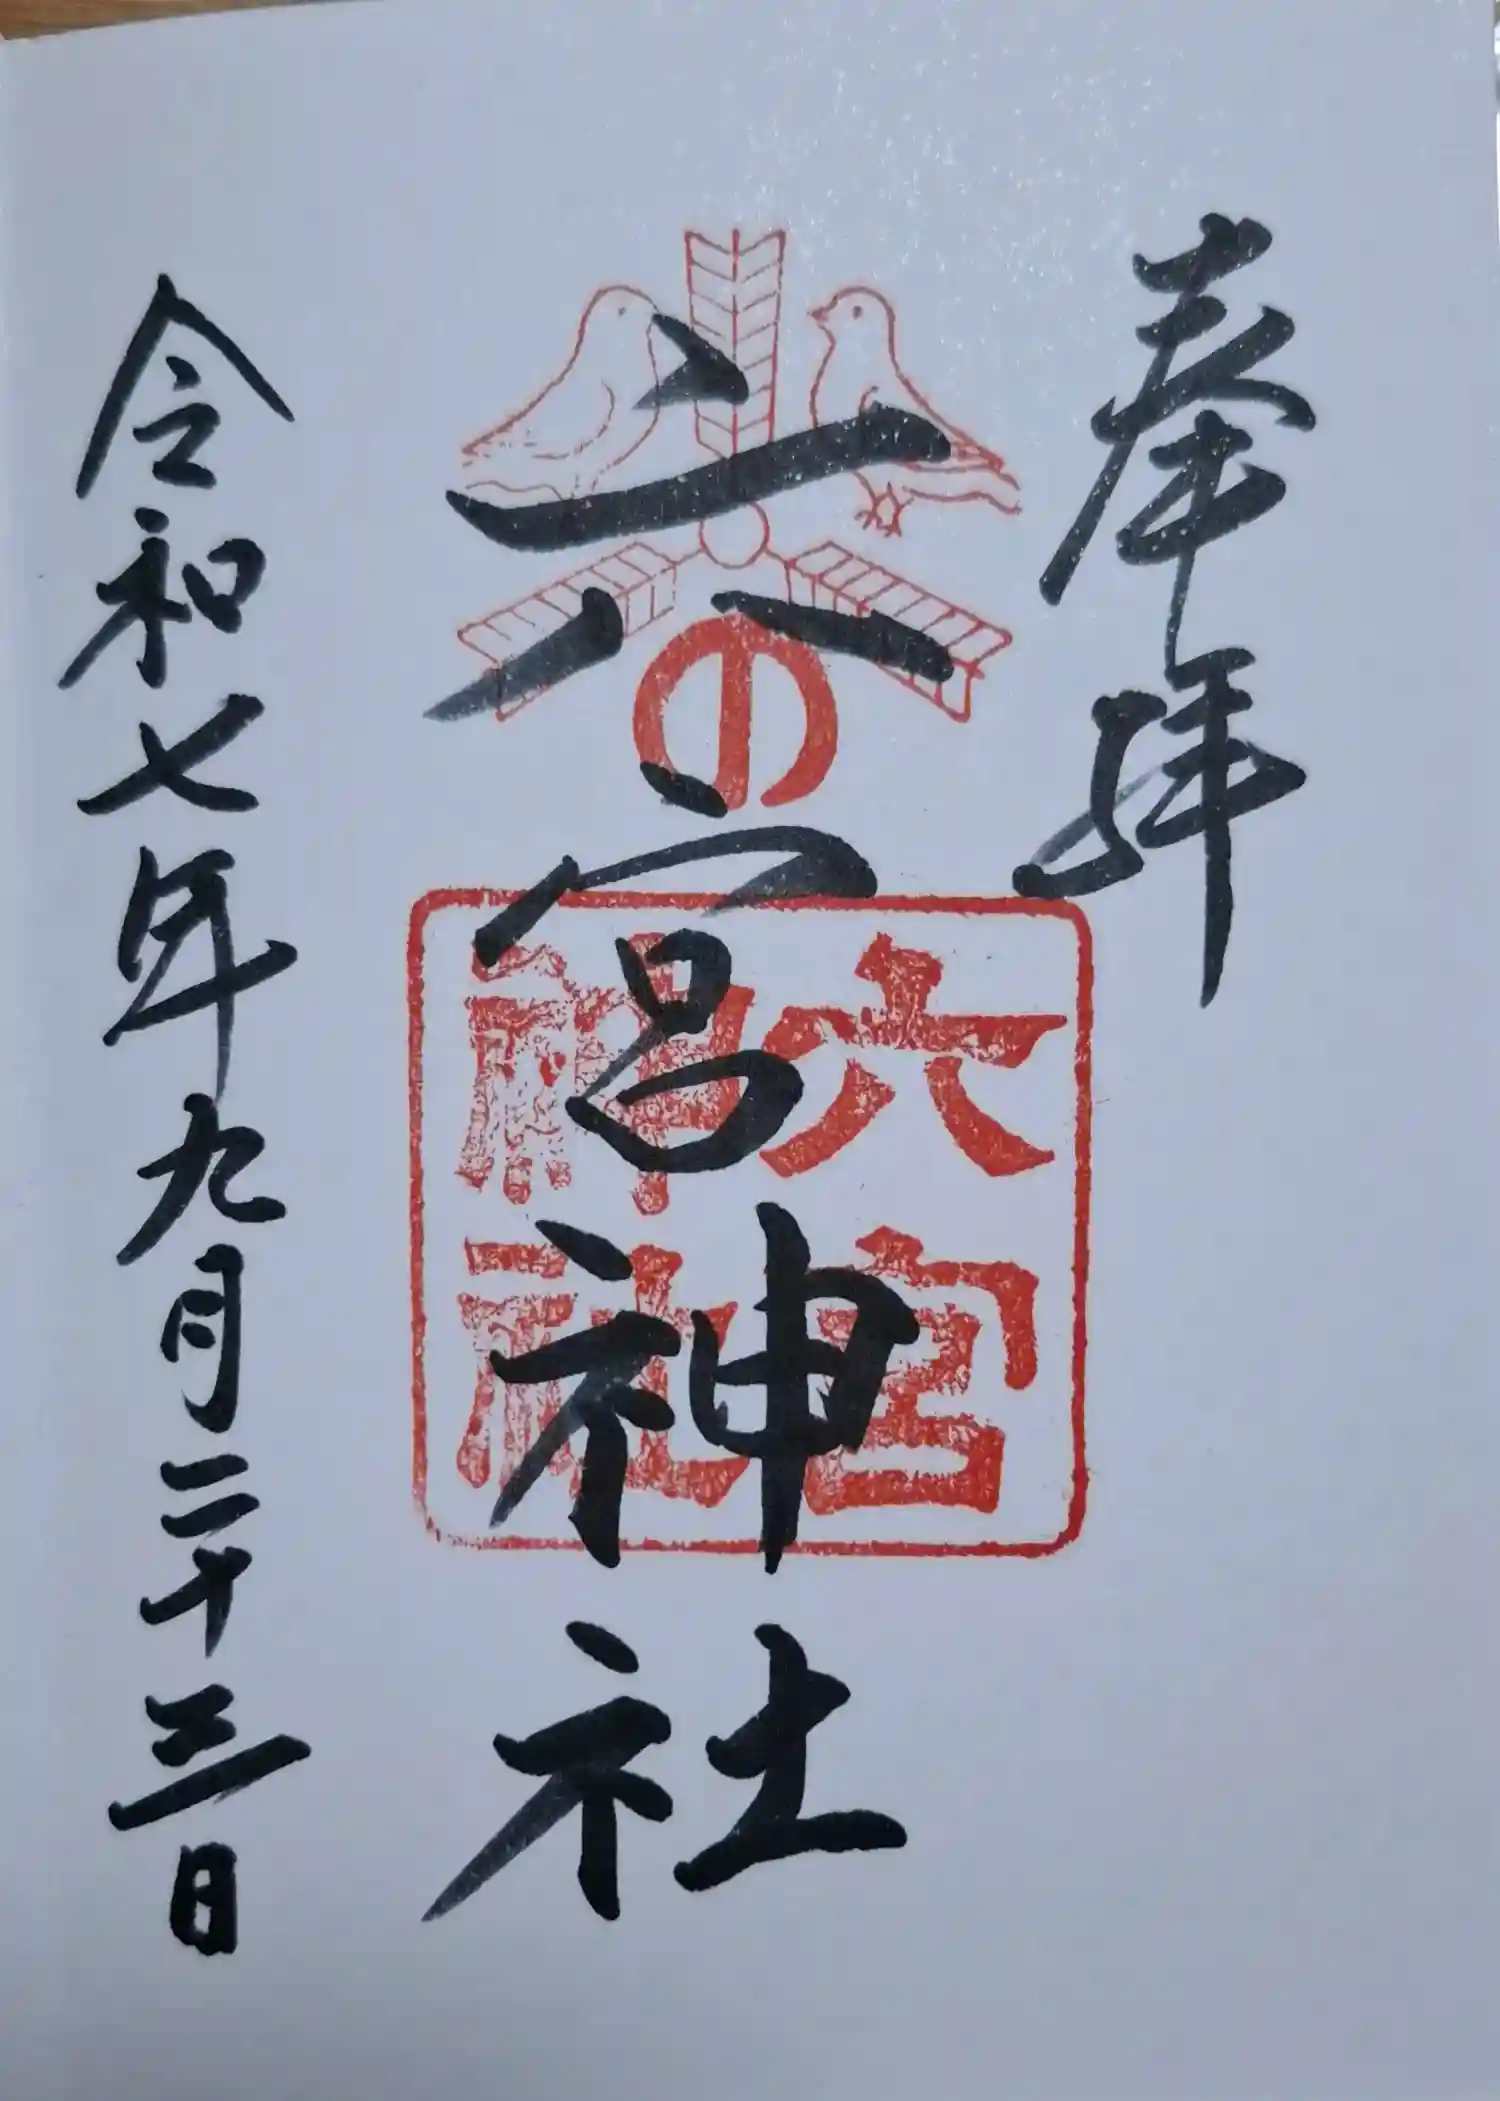 奉拝
六の宮神社
六宮
神社
令和七年九月二十三日